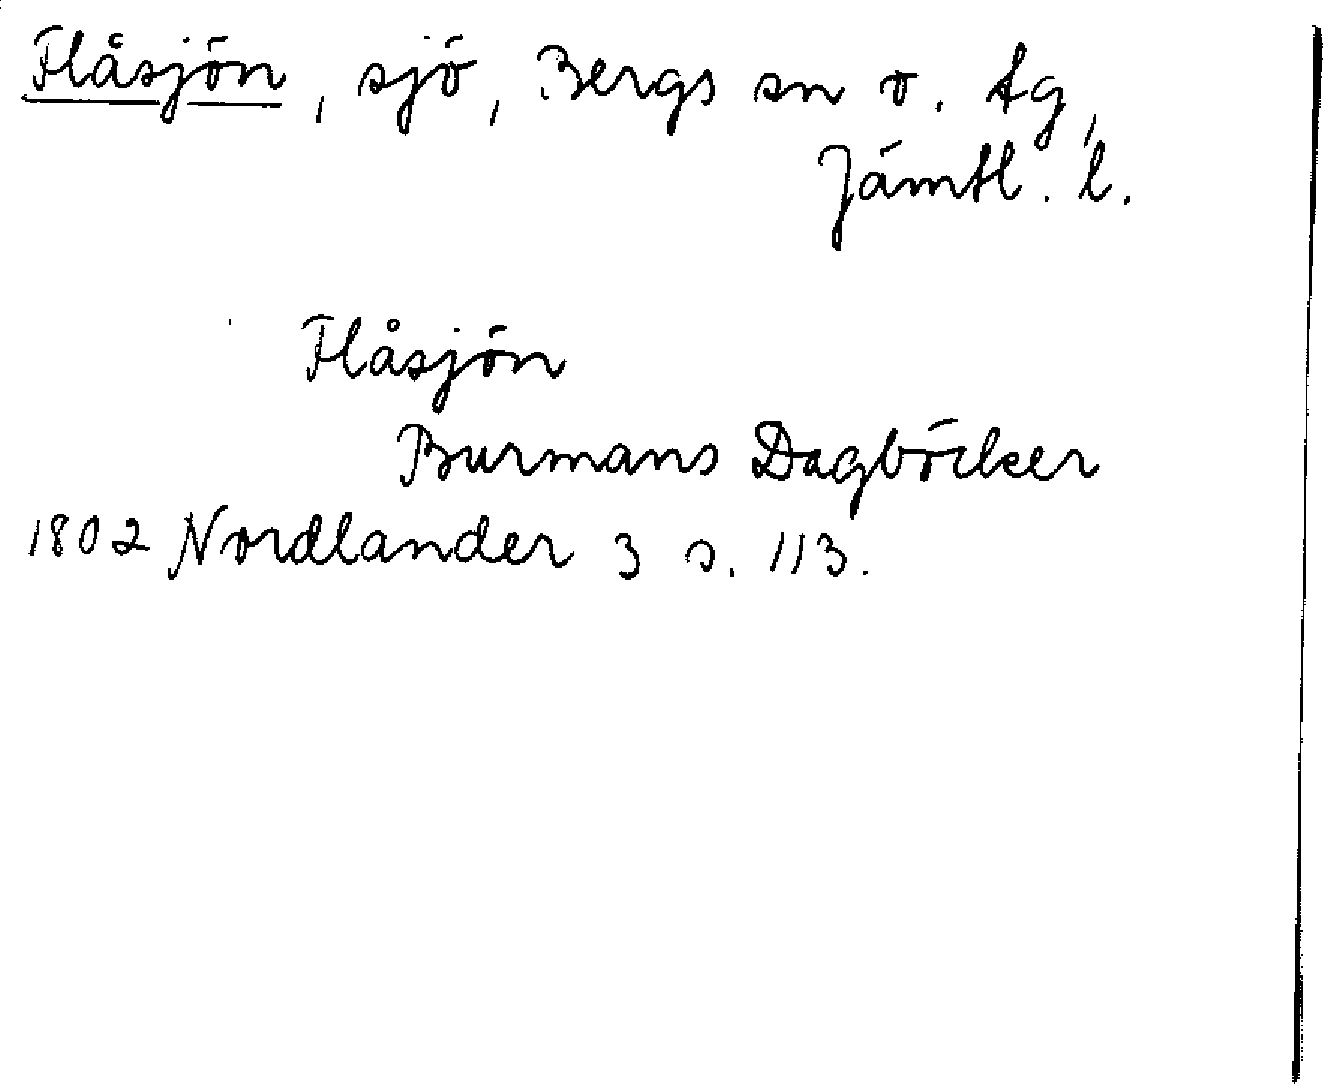 Flåsjön, sjö, Bergs sn o. tg,
Jämtl. l.
Flåsjön
Burmans Dagböcker
1802 Nordlander 3 s. 113.